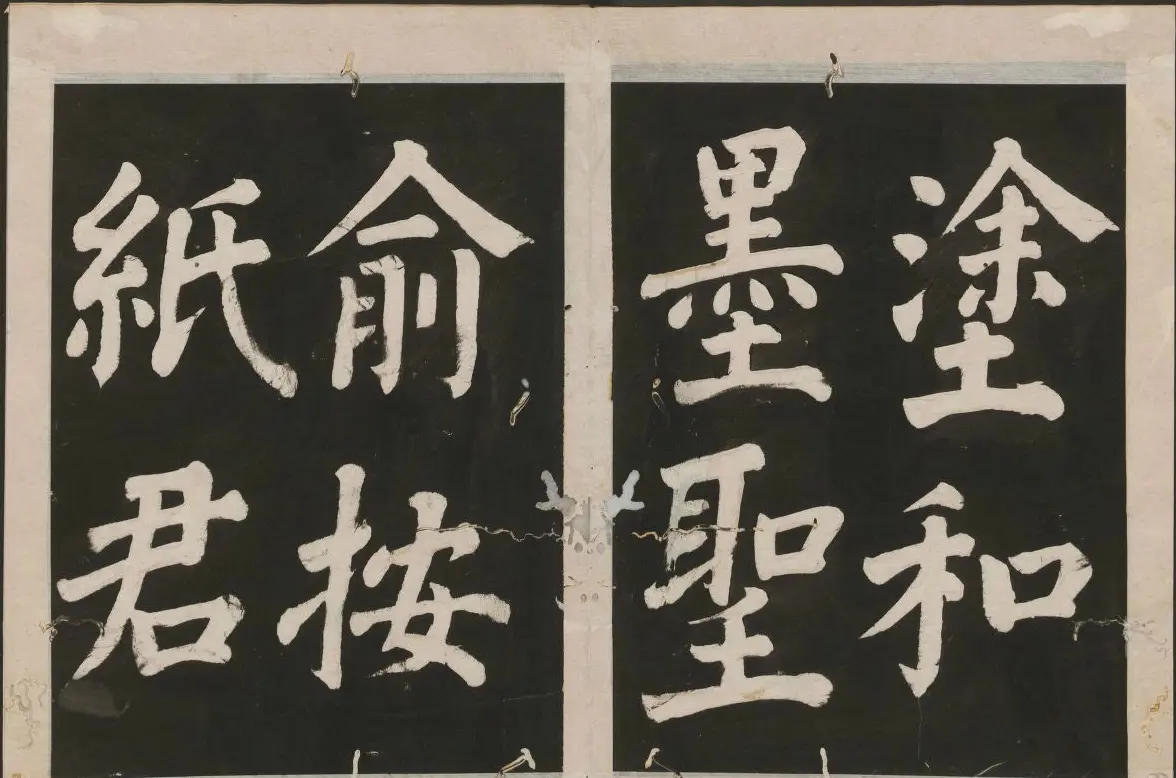 塗和
墨聖
俞按
紙君